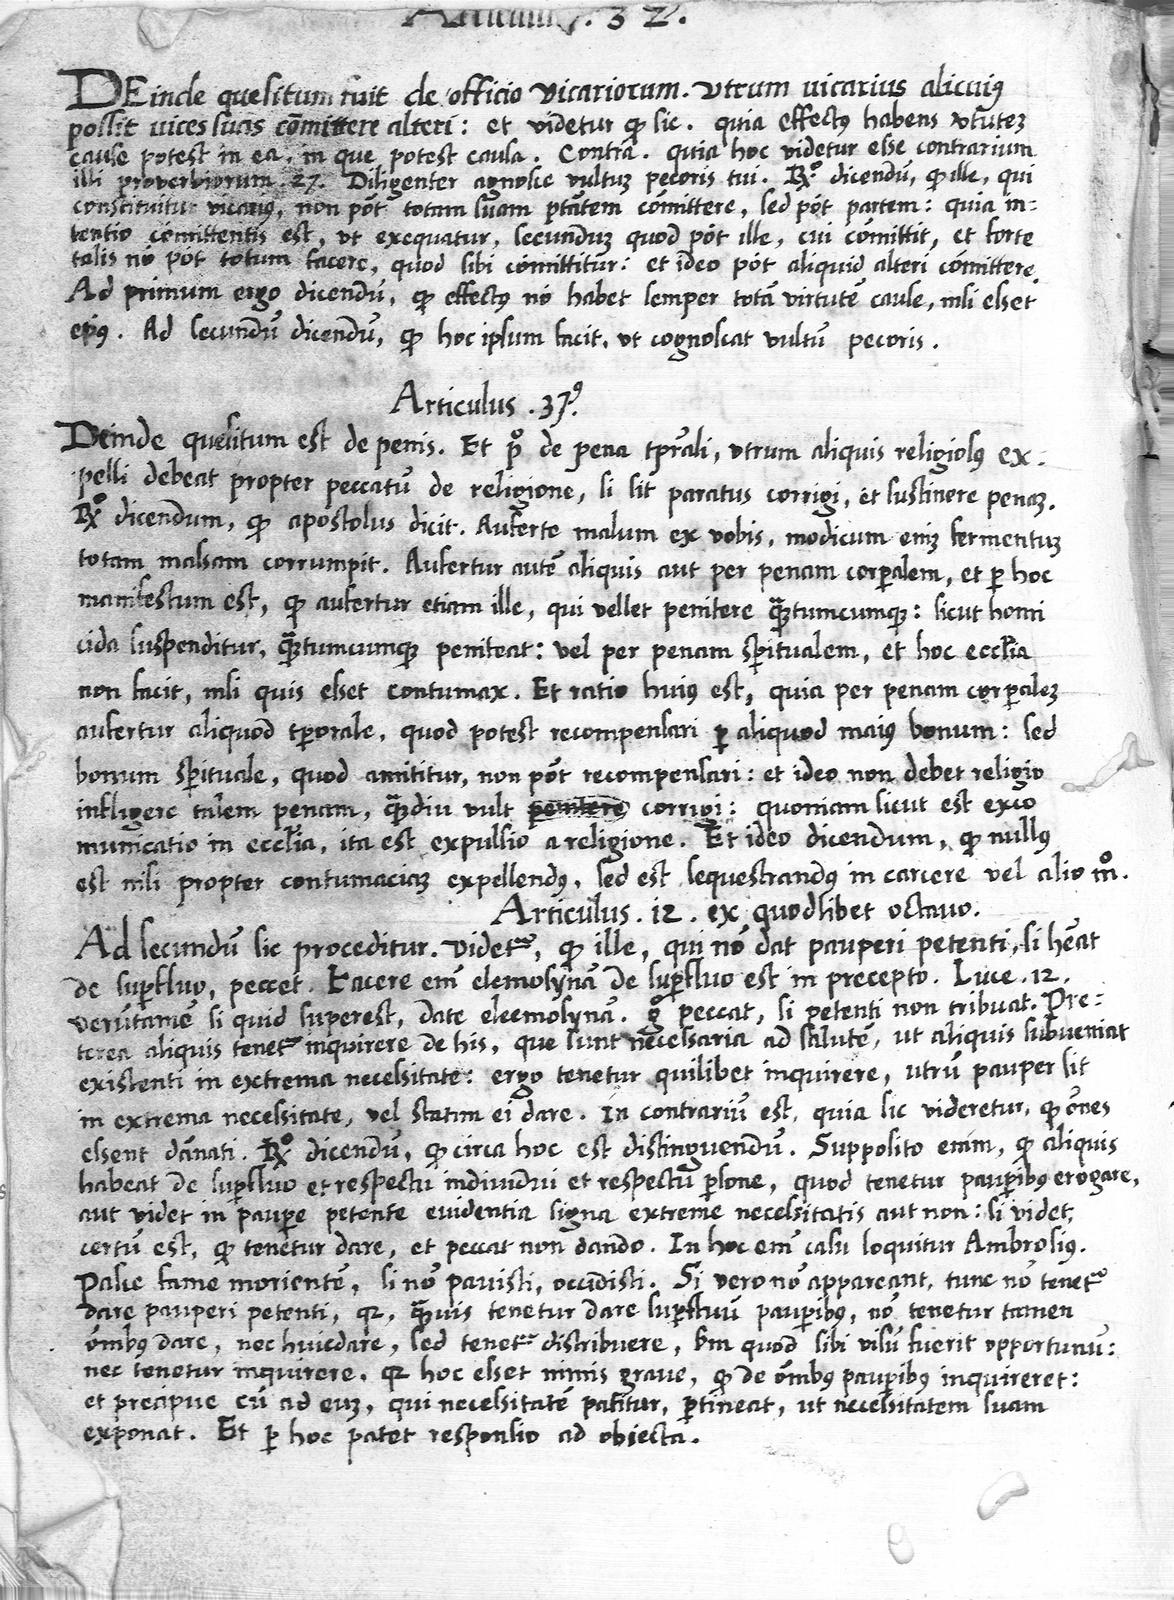 Articulus. 32.
DEinde quesitum fuit de officio vicariorum. Utrum vicarius alicuiꝰ
possit uices suas cõmittere alteri: et videtur ꝙ sic. quia effectꝰ habens v̾tuteꝫ
cause potest in ea, in que potest causa. Contra. quia hoc videtur esse contrarium
illi proverbiorum .27. Diligenter agnosce vultuꝫ pecoris tui. R̷º dicendũ, ꝙ ille, qui
constituitur vicariꝰ, non põt totam suam ptãtem cõmittere, sed põt partem: quia in=
tentio cõmittentis est, ut exequatur, secunduꝫ quod põt ille, cui cõmittit, et forte
talis nõ põt totum facere, quod sibi cõmittitur: et ideo põt aliquid alteri cõmittere.
Ad primum ergo dicendũ, ꝙ effectꝰ nõ habet semper totã virtutẽ cause, nisi esset
eiꝰ. Ad secundũ dicendũ, ꝙ hoc ipsum facit, ut cognoscat vultũ pecoris.
Articulus .37.º
Deinde quesitum est de penis. Et pº de pena tp̃rali, vtrum aliquis religiosꝰ ex=
pelli debeat propter peccatũ de religione, si sit paratus corrigi, et sustinere penaꝫ.
R̷º dicendum, ꝙ apostolus dicit. Auferte malum ex vobis, modicum eniꝫ fermentuꝫ
totam massam corrumpit. Aufertur autẽ aliquis aut per penam corꝑalem, et ꝑ hoc
manifestum est, ꝙ aufertur etiam ille, qui vellet penitere quãtumcumqꝫ: sicut homi
cida suspenditur, quãtumcumqꝫ peniteat: vel per penam sp̃itualem, et hoc eccl̃ia
non facit, nisi quis esset contumax. Et ratio huiꝰ est, quia per penam corꝑaleꝫ
aufertur aliquod tꝑorale, quod potest recompensari ꝑ aliquod maiꝰ bonum: sed
bonum sp̃ituale, quod amititur, non põt recompensari: et ideo non debet religio
infligere talem penam, quãdiu vult penitere corrigi: quoniam sicut est exco
municatio in eccl̃ia, ita est expulsio a religione. Et ideo dicendum, ꝙ nullꝰ
est nisi propter contumaciaꝫ expellendꝰ, sed est sequestrandꝰ in carcere vel alio mº.
Articulus. 12. ex quodlibet octavo.
Ad secundũ sic proceditur. videtʳ, ꝙ ille, qui nõ dat pauperi petenti, si hẽat
de suꝑfluo, peccet. Facere em̃ elemosynã de suꝑfluo est in precepto. Luce .12.
verũtamẽ si quid superest, date eleemosynã. gº peccat, si petenti non tribuat. Pre=
terea aliquis tenetʳ inquirere de his, que sunt necessaria ad salutẽ, ut aliquis subueniat
existenti in extrema necessitate: ergo tenetur quilibet inquirere, utrũ pauper sit
in extrema necessitate, vel statim ei dare. In contrariũ est, quia sic videretur, ꝙ õnes
essent dãnati. R̷º dicendũ, ꝙ circa hoc est distinguendũ. Supposito enim, ꝙ aliquis
habeat de suꝑfluo et respectu individui et respectu ꝑsone, quod tenetur pauꝑibꝰ erogare,
aut videt in pauꝑe petente euidentia signa extreme necessitatis aut non: si videt,
certũ est, ꝙ tenetur dare, et peccat non dando. In hoc em̃ casu loquitur Ambrosiꝰ.
Pasce fame morientẽ, si nõ pavisti, occidisti. Si vero nõ appareant, tunc nõ tenetʳ
dare pauperi petenti, qꝛ, quãuis tenetur dare suꝑfluũ pauꝑibꝰ, nõ tenetur tamen
õmbꝰ dare, nec huic dare, sed tenetʳ distribuere, s̃m quod sibi visũ fuerit opportunũ:
nec tenetur inquirere, qꝛ hoc esset nimis graue, ꝙ de õmbꝰ pauꝑibꝰ inquireret:
et precipue cũ ad euꝫ, qui necessitatẽ patitur, ꝑtineat, ut necessitatem suam
exponat. Et ꝑ hoc patet responsio ad obiecta.